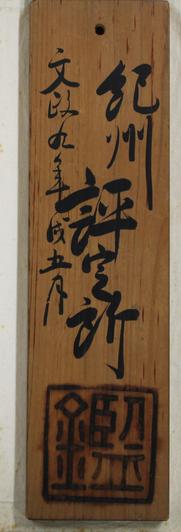 紀州
評定所
文政九年戌五月
鑑